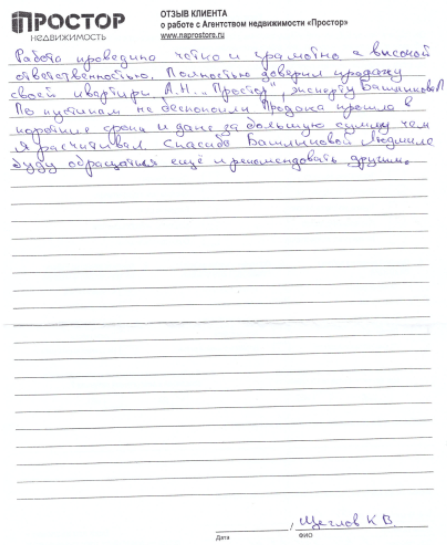 ПРОСТОР
НЕДВИЖИМОСТЬ
ОТЗЫВ КЛИЕНТА
о работе с Агентством недвижимости «Простор»
www.naprostore.ru
Работа проведина чётко и грамотно с высокой
ответственностью. Полностью доверил продажу
своей квартиры А.Н. „Простор", эксперту Башлыковой Л
По пустякам не беспокоили Продажа прошла в
короткие сроки и даже за большую сумму чем
я расчитывал. Спасибо Башлыковой Людмиле
буду обращаться ещё и рекомендовать другим.
/ Щеглов К В.
Дата
ФИО